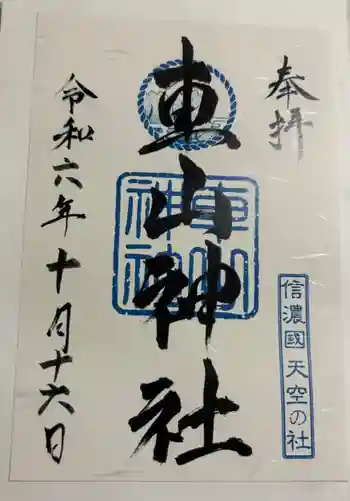 奉拝
車山神社
車山神社
信濃國 天空の社
令和六年十月十六日